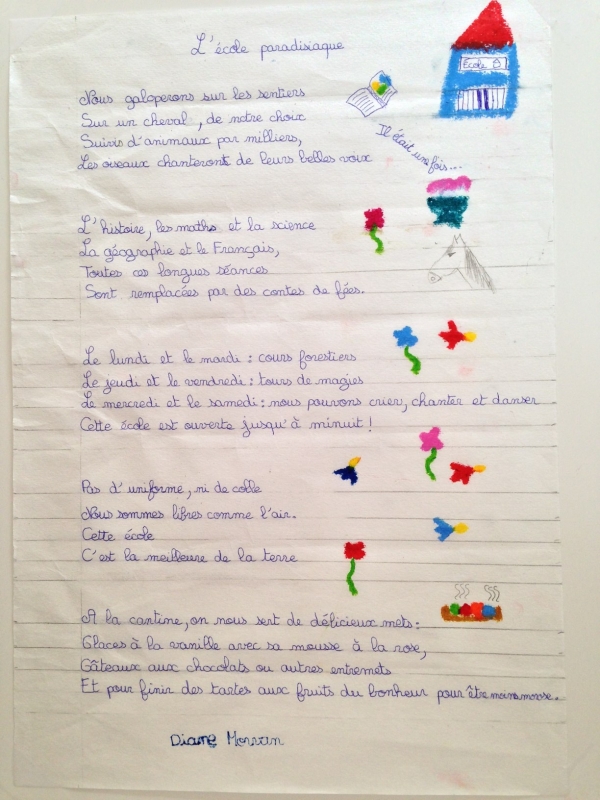 L'école paradisiaque
École
Nous galoperons sur les sentiers
Sur un cheval, de notre choix
Suivis d'animaux par milliers,
Les oiseaux chanteront de leurs belles voix
Il était une fois...
L'histoire, les maths et la science
La géographie et le Français,
Toutes ces longues séances
Sont remplacées par des contes de fées.
Le lundi et le mardi : cours forestiers
Le jeudi et le vendredi : tours de magies
Le mercredi et le samedi : nous pouvons crier, chanter et danser
Cette école est ouverte jusqu'à minuit !
Pas d'uniforme, ni de colle
Nous sommes libres comme l'air.
Cette école
C'est la meilleure de la terre
A la cantine, on nous sert de délicieux mets :
Glaces à la vanille avec sa mousse à la rose,
Gâteaux aux chocolats ou autres entremets
Et pour finir des tartes aux fruits du bonheur pour être moins morose.
Diane Morvan